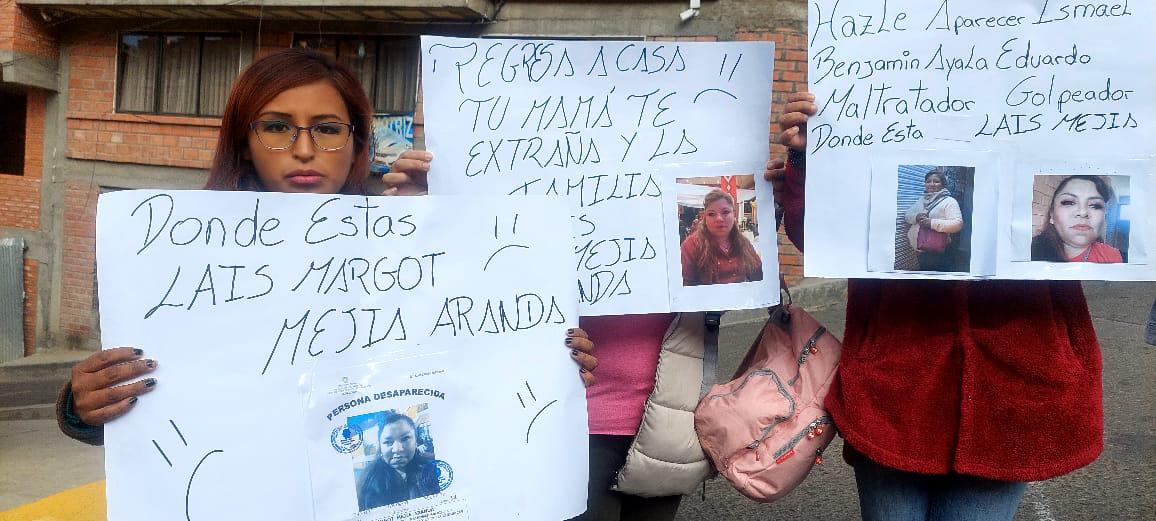 Donde Estas
LAIS MARGOT
MEJIA ARANDA
PERSONA DESAPARECIDA
REGRESA A CASA
TU MAMÁ TE
EXTRAÑA Y LA
FAMILIA
MEJIA
Hazle Aparecer Ismael
Benjamin Ayala Eduardo
Maltratador Golpeador
Donde Esta LAIS MEJIA